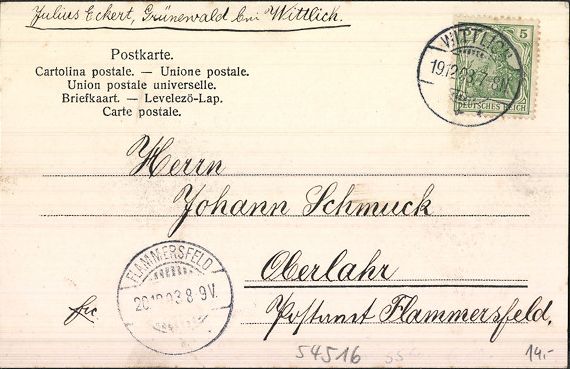 Julius Eckert, Grünewald bei Wittlich.
5
WITTLICH
19.12.03.7-8V.
DEUTSCHES REICH
Postkarte.
Cartolina postale. — Unione postale.
Union postale universelle.
Briefkaart. — Levelező-Lap.
Carte postale.
Herrn
Johann Schmuck
Oberlahr
Postamt Flammersfeld,
frc.
FLAMMERSFELD
20.12.03 8-9V.
54516
14,-